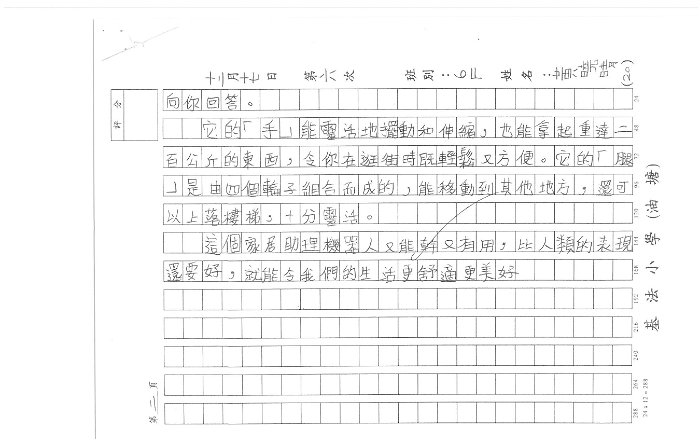 十二月十七日 第六次 班別：6F 姓名：黃曉晴 (20)
評分
向你回答。
它的「手」能靈活地擺動和伸縮，也能拿起重達二
百公斤的東西，令你在逛街時既輕鬆又方便。它的「腿
」是由四個輪子組合而成的，能移動到其他地方，還可
以上落樓梯，十分靈活。
這個家居助理機器人又能幹又有用，比人類的表現
還要好，就能令我們的生活更舒適更美好
第二頁
24
48
72
96
120
144
168
192
216
240
264
288
24 x 12 = 288
基法小學(油塘)